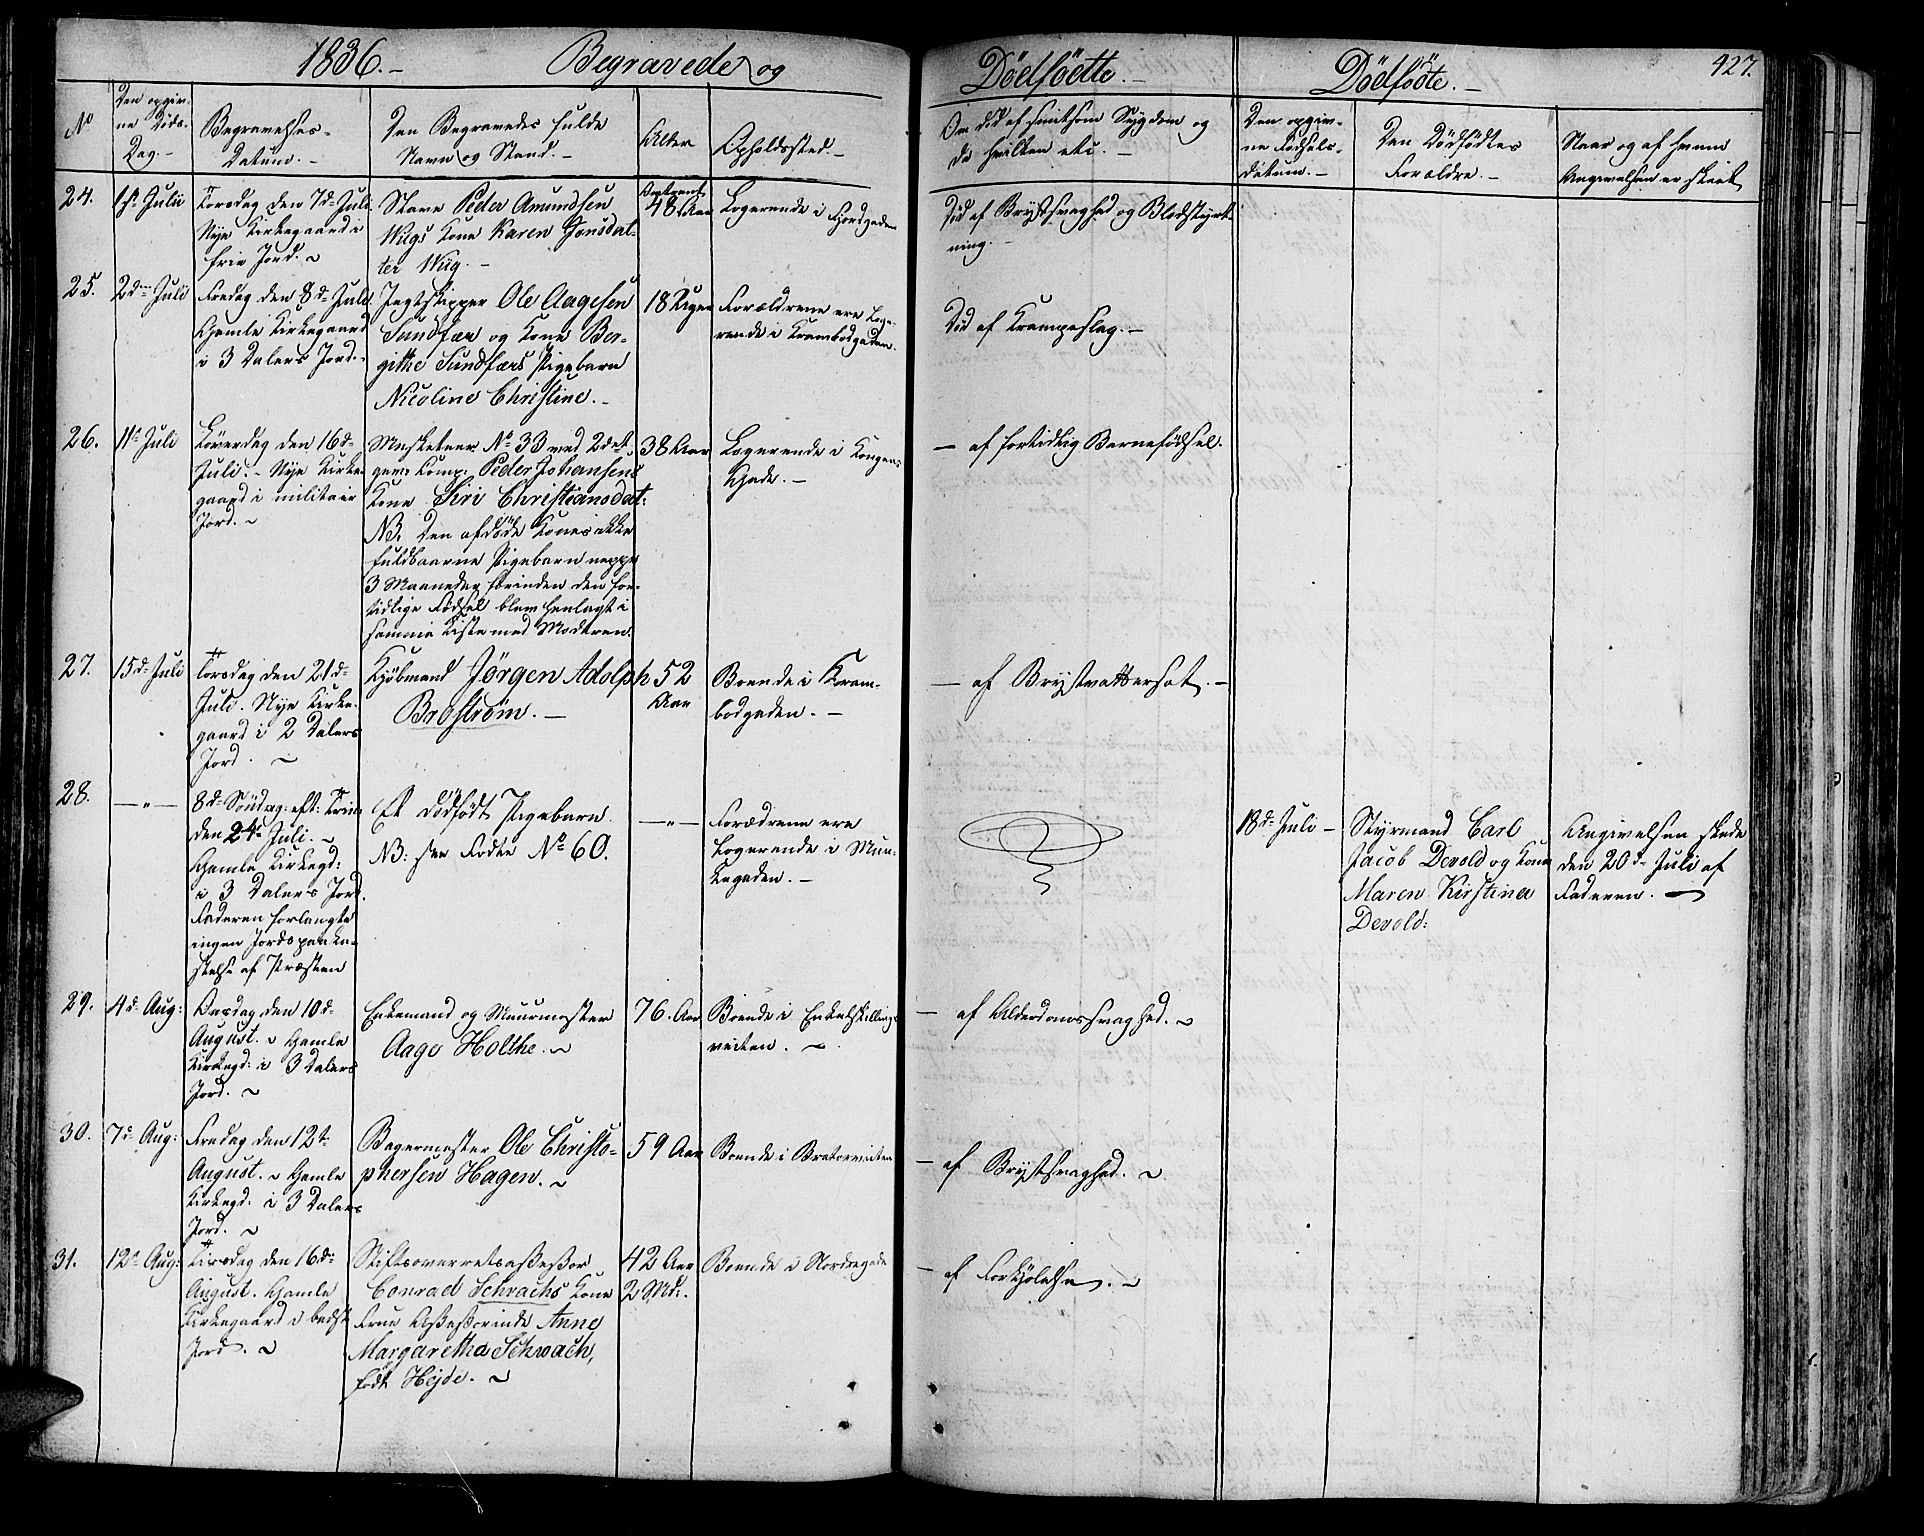 1836.- Begravede og Dødføette.- Dødføðte.- 427.
No
Den opgiv-
ne Døds-
Dag.-
Begravelses-
Datum.-
Den Begravedes fulde
Navn og Stand.-
Alder
Opholdsted.-
Om død af smitsom Sygdom og
da hvilken etc.-
Den opgiv-
ne Fødsels-
datum.-
Den Dødfødtes
Forældre.-
Naar og af hvem
Angivelsen er skeet
24.
1ste Julii
Torsdag den 7de Juli
Nye Kirkegaard i
frie Jord.
Peder Amundsen
Wiigs Kone Karen Jonsdat-
ter Wiig.-
Omtrent
48 Aar
Logerende i Fjordgaden
død af Brystsvaghed og Blodstyrt-
ning.-
25.
2den Juli
Fredag den 8de Juli
Gamle Kirkegaard
i 3 Dalers Jord.
Jegtskipper Ole Aagesen
Sundfær og Kone Ber-
githe Sundfærs Pigebarn
Nicoline Christine.-
18 Uger
Forældrene ere Loge-
rende i Krambodgaden.
Død af Krampeslag.-
26.
11te Juli
Løverdag den 16de
Juli.- Nye Kirke-
gaard i militair
Jord.
Musketeer No 33 ved 2det
gev: Komp: Peder Johansens
Kone Siri Christiansdat:
NB. Den afdøde Kones ikke
fuldbaarne Pigebarn neppe
3 Maaneder forinden den for-
tidlige Fødsel blev henlagt i
samme Kiste med Moderen.
38 Aar
Logerende i Kongens
Gade.-
- af fortidlig Barnefødsel.
27.
15de Juli
Torsdag den 21de
Juli. Nye Kirke-
gaard i 2 Dalers
Jord.
Kjøbmand Jörgen Adolph
Broström.-
52
Aar
Boende i Kram-
bodgaden.-
- af Brystvattersot.-
28.
-"-
8de Søndag eft: Trin:
den 24de Juli.
Gamle Kirkegd:
i 3 Dalers Jord.
Faderen forlangte
ingen Jordspaaka-
stelse af Præsten
Et dødfødt Pigebarn.
NB: see Fødte No 60.
-"-
Forældrene ere
Logerende i Mun-
kegaden.-
18de Juli -
Styrmand Carl
Jacob Devold og Kone
Maren Kirstina
Devold:
Angivelsen skede
den 20de Juli af
Faderen.-
29.
4de Aug:
Onsdag den 10de
August. Gamle
Kirkegd: i 3 Dalers
Jord.
Enkemand og Muurmester
Aage Holthe.
76. Aar
Boende i Enkeltskillings
veiten.
- af Alderdomssvaghed.
30.
7de Aug:
Fredag den 12te
August. Gamle
Kirkegd. i 3 Dalers
Jord.
Bagermester Ole Christo-
phersen Hagen.
59 Aar
Boende i Bratørveiten
- af Brystsvaghed.
31.
12te Aug:
Tirsdag den 16de
August. Gamle
Kirkegaard i bedste
Jord.
Stiftsoverretsassessor
Conrad Schwachs Kone
Frue Assessorinde Anne
Margaretha Schwach,
født Hejde.
42 Aar
2 Mdr.
Boende i Nordregade
- af Forkjølelse.